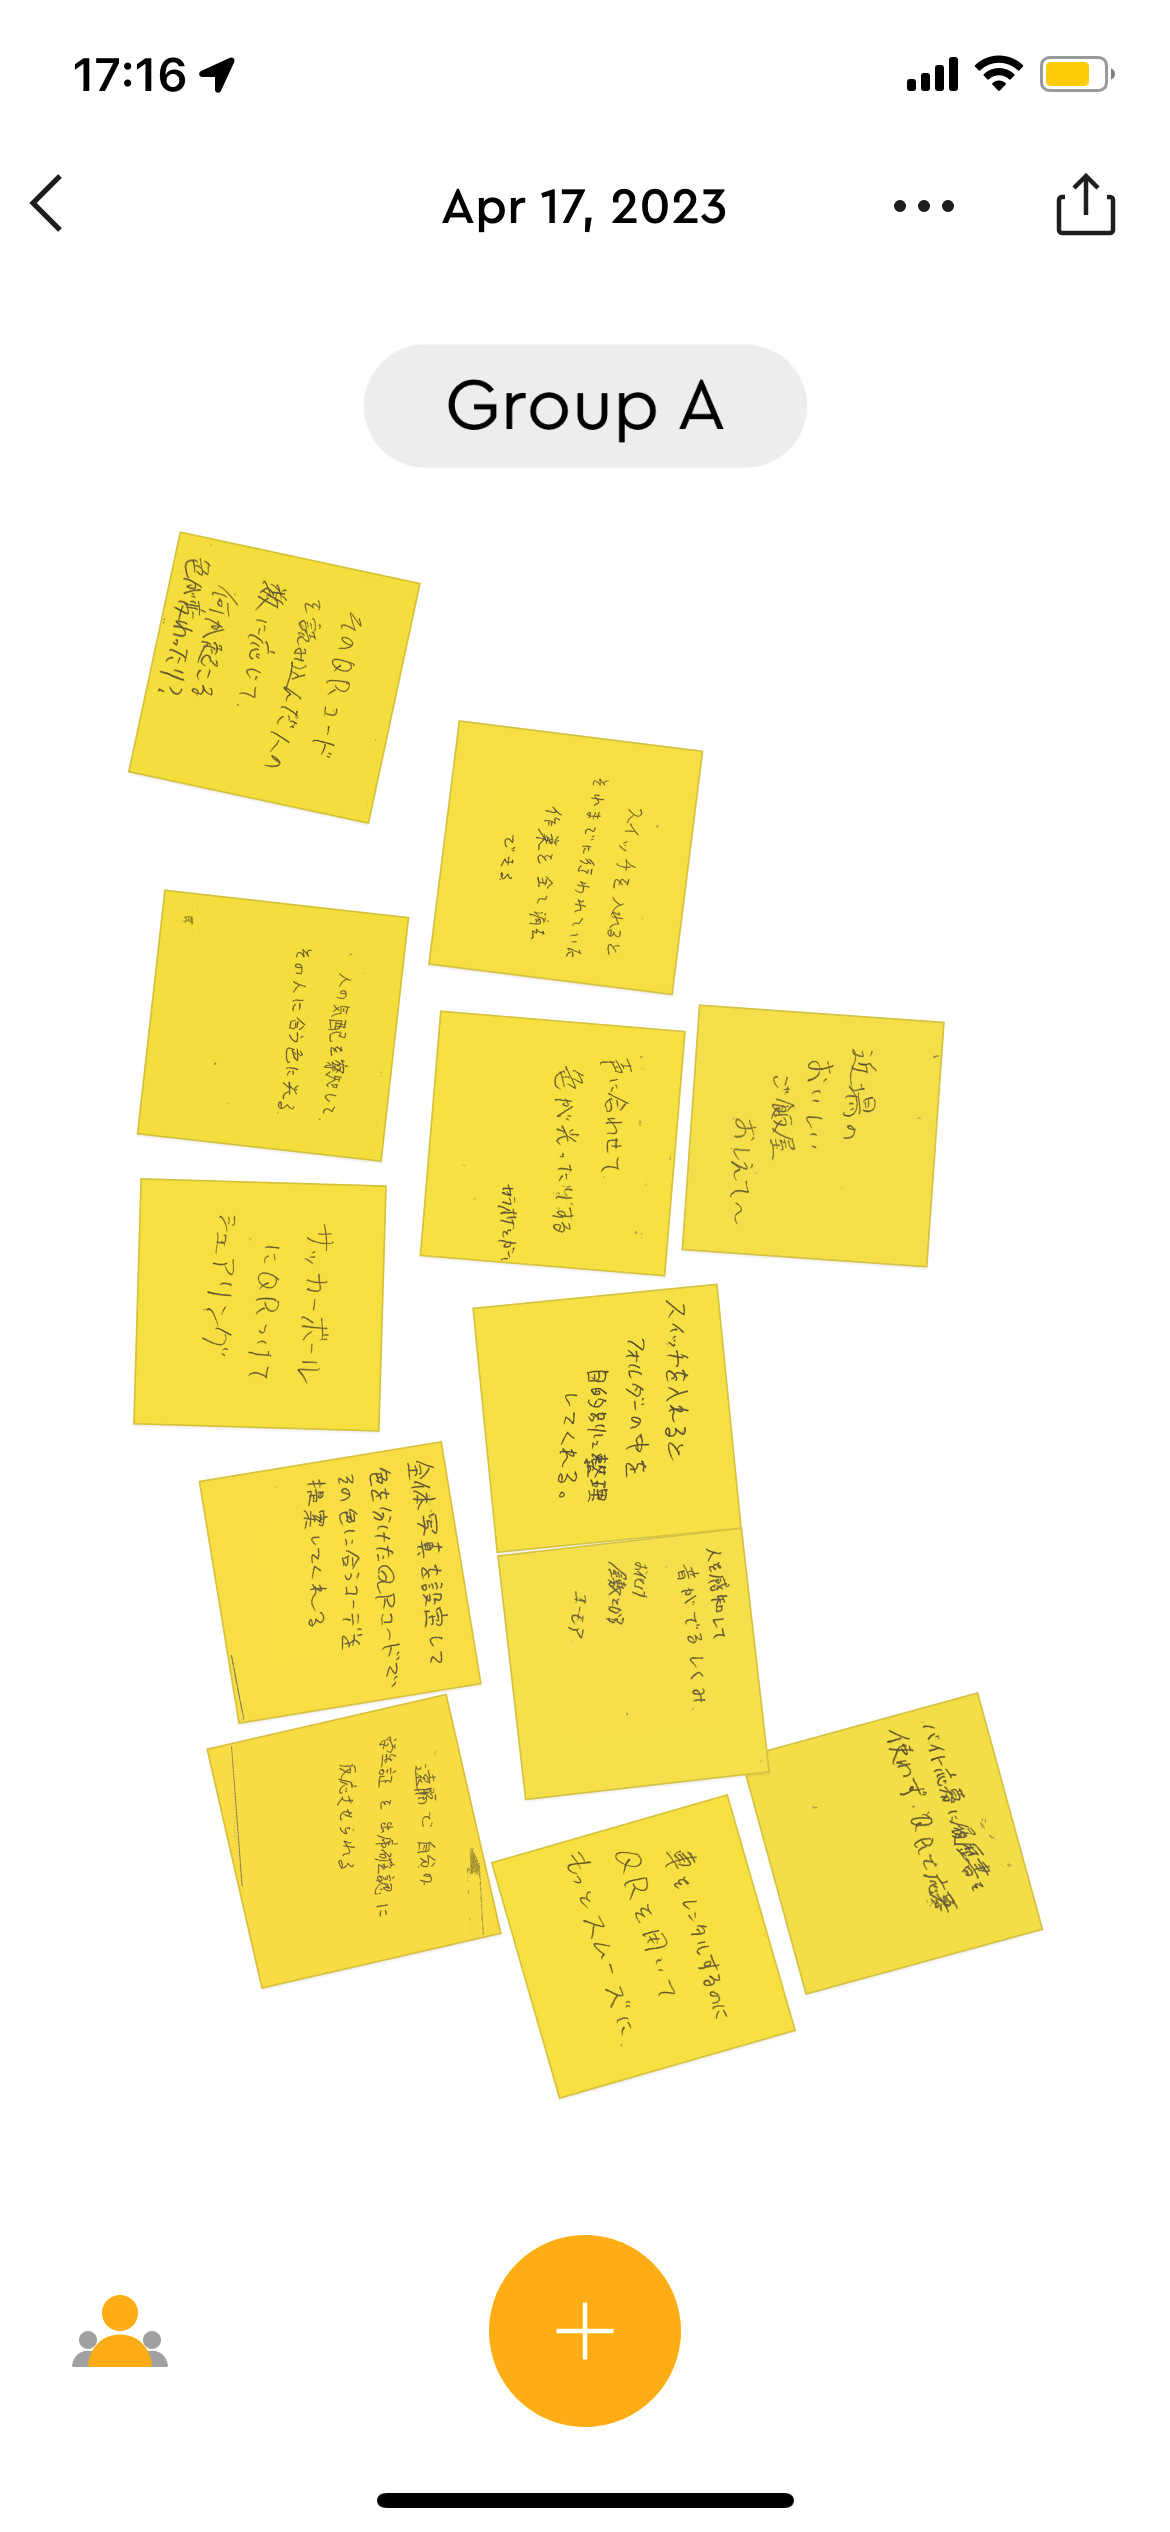 17:16
Apr 17, 2023
Group A
そのQRコード
を読み込んだ人の
数に応じて
何か起こる
色が変わったり?
スイッチを入れると
それまでに行われていた
作業を全て消去
できる
人の気配を察知して
その人に合う色に光る
声に合わせて
色が光ったりする
カラオケとかで
近場の
おいしい
ご飯屋
おしえて〜
サッカーボール
にQRつけて
シェアリング
スイッチを入れると
フォルダーの中を
目的別に整理
してくれる。
全体写真を設定して
色を分けたQRコードで
その色に合うコーデを
提案してくれる
人を感知して
音がでるしくみ
遠隔で自分の
学生証を出席確認に
反応させられる
車をレンタルするのに
QRを用いて
もっとスムーズに
バイト応募に履歴書を
使わず、QRで応募